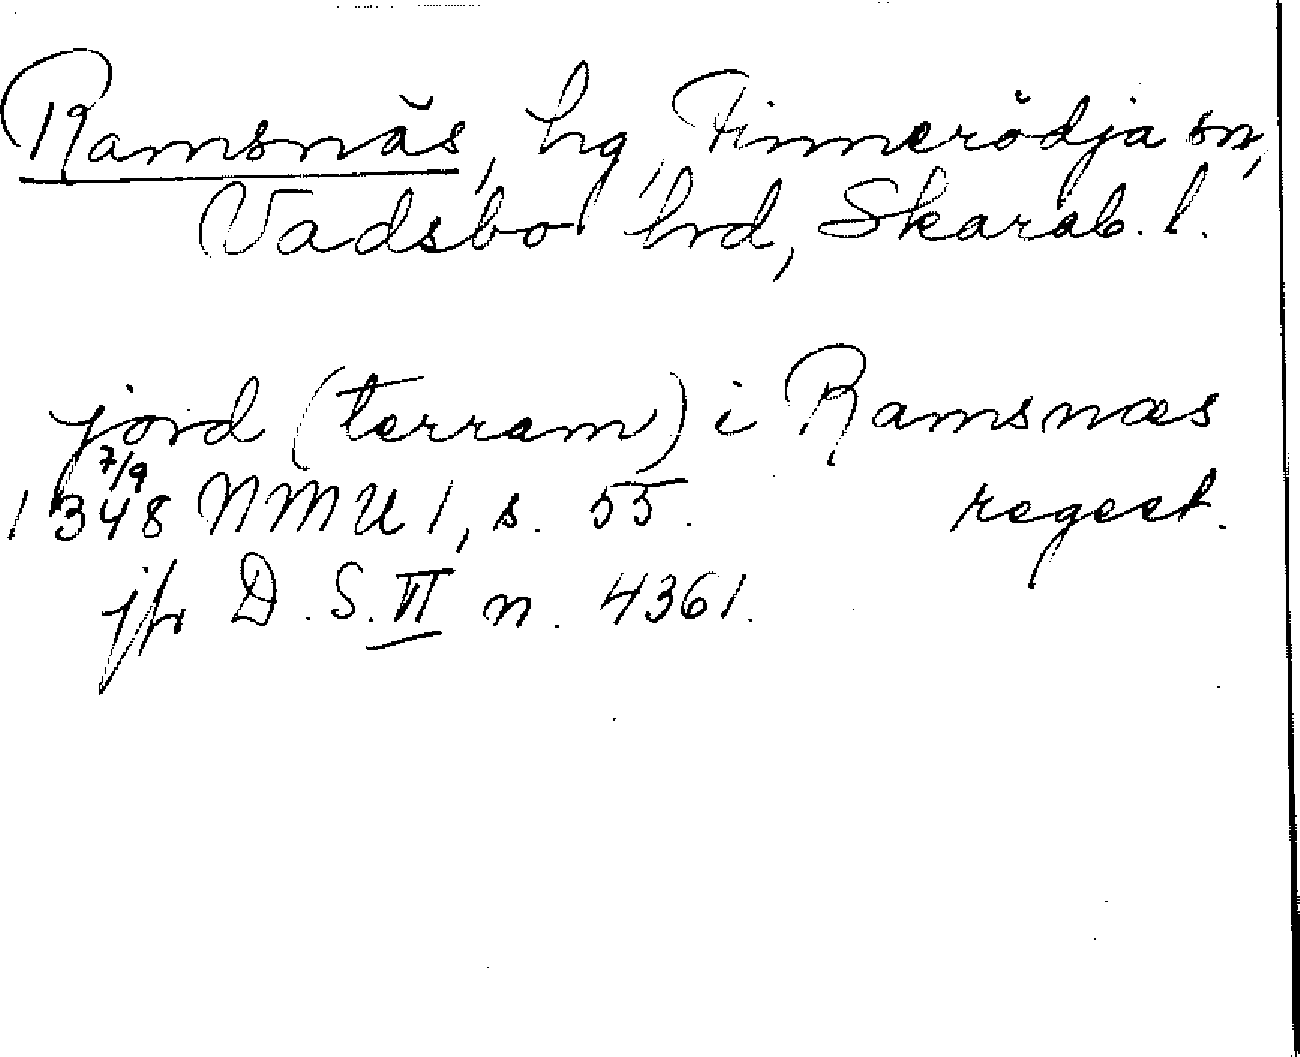 Ramsnäs, hg, Finnerödja sn,
Vadsbo hrd, Skarab. l.
jord (terram) i Ramsnæs
7/9
1348 NMU 1, s. 55. regest.
jfr D. S. VI n. 4361.